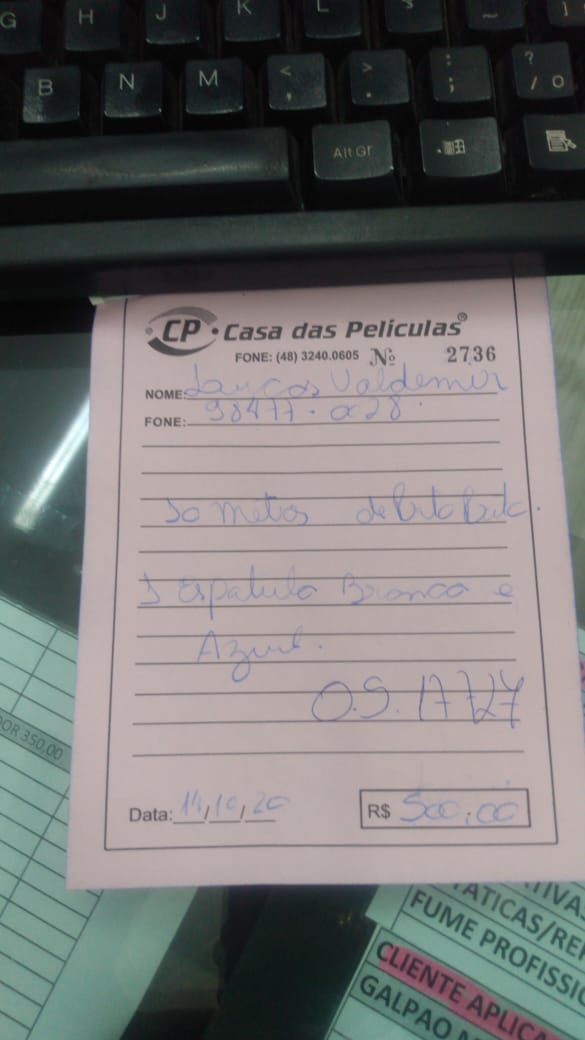 G H J K L
B N M < , > . : ; ? / º
Alt Gr
CP • Casa das Películas®
FONE: (48) 3240.0605 Nº 2736
NOME: Valdemir
FONE: 98477.
metros de
1 Espatula Branca e
Azul.
O.S. 17727
Data: 14/10/20 R$ 500,00
OR 350,00
FUME PROFISSI
CLIENTE APLICA
GALPAO M